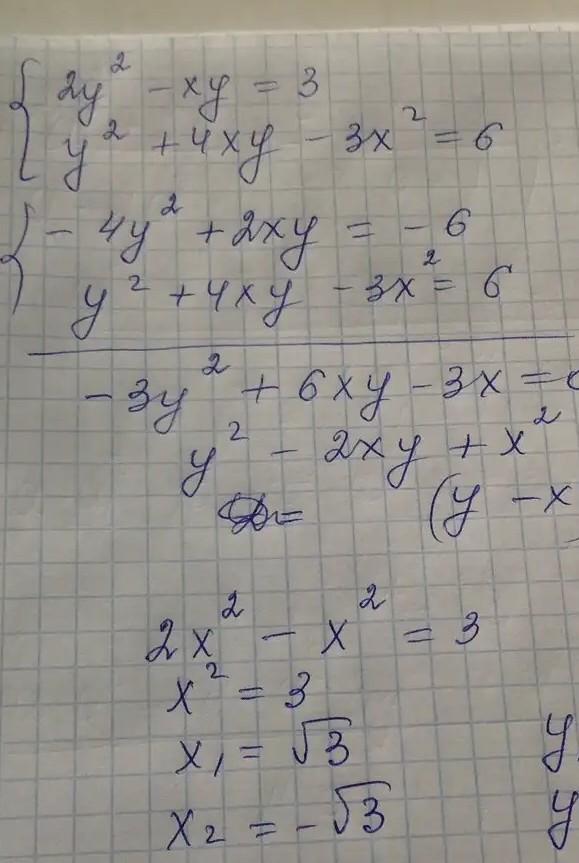 { 2y² - xy = 3
y² + 4xy - 3x² = 6
{ - 4y² + 2xy = - 6
y² + 4xy - 3x² = 6
- 3y² + 6xy - 3x =
y² - 2xy + x²
= (y - x
2x² - x² = 3
x² = 3
x₁ = √3 y
x₂ = -√3 y